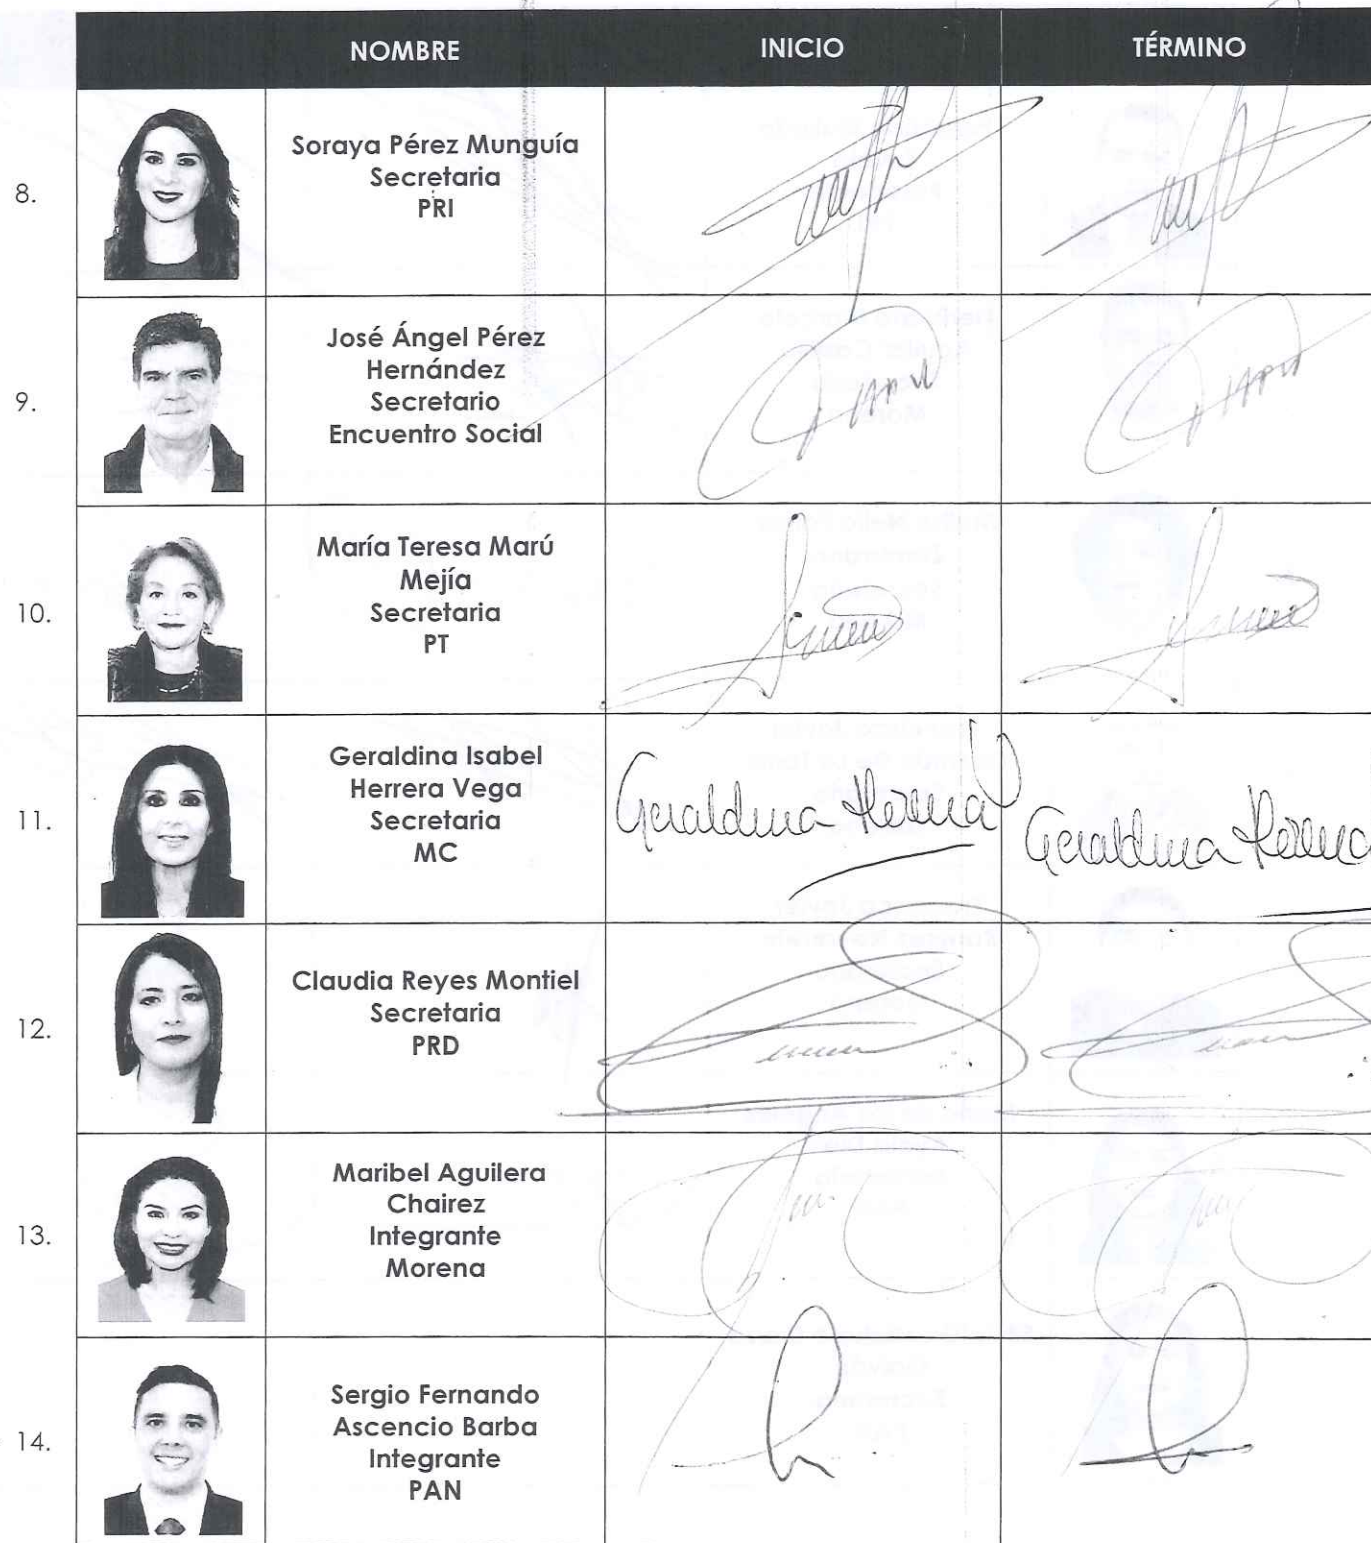 NOMBRE INICIO TÉRMINO
8.
Soraya Pérez Munguía
Secretaria
PRI
9.
José Ángel Pérez
Hernández
Secretario
Encuentro Social
10.
María Teresa Marú
Mejía
Secretaria
PT
11.
Geraldina Isabel
Herrera Vega
Secretaria
MC
Geraldina Herrera Geraldina Herrera
12.
Claudia Reyes Montiel
Secretaria
PRD
13.
Maribel Aguilera
Chairez
Integrante
Morena
14.
Sergio Fernando
Ascencio Barba
Integrante
PAN